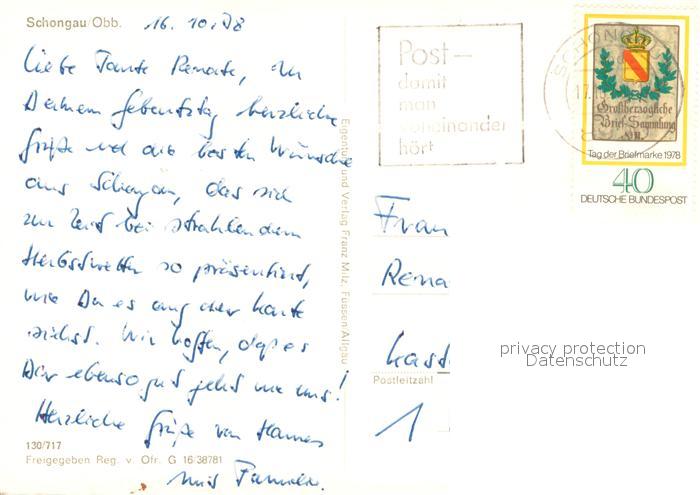 Schongau/Obb.
16.10.78
Liebe Tante Renate, zu
Deinem Geburtstag herzliche
Grüße und die besten Wünsche
aus Schongau, das sich
zur Zeit bei strahlendem
Herbstwetter so präsentiert,
wie Du es auf der Karte
siehst. Wir hoffen, daß es
Dir ebenso gut geht wie uns!
Herzliche Grüße von Hannes
und Familie.
130/717
Freigegeben Reg. v. Ofr. G 16/38781
Eigentum und Verlag Franz Milz, Füssen/Allgäu
Post—
damit
man
voneinander
hört
SCHONG
17.
Großherzogliche
Brief-Sammlung
Tag der Briefmarke 1978
40
DEUTSCHE BUNDESPOST
Frau
Rena
Kast
Postleitzahl
1
privacy protection
Datenschutz